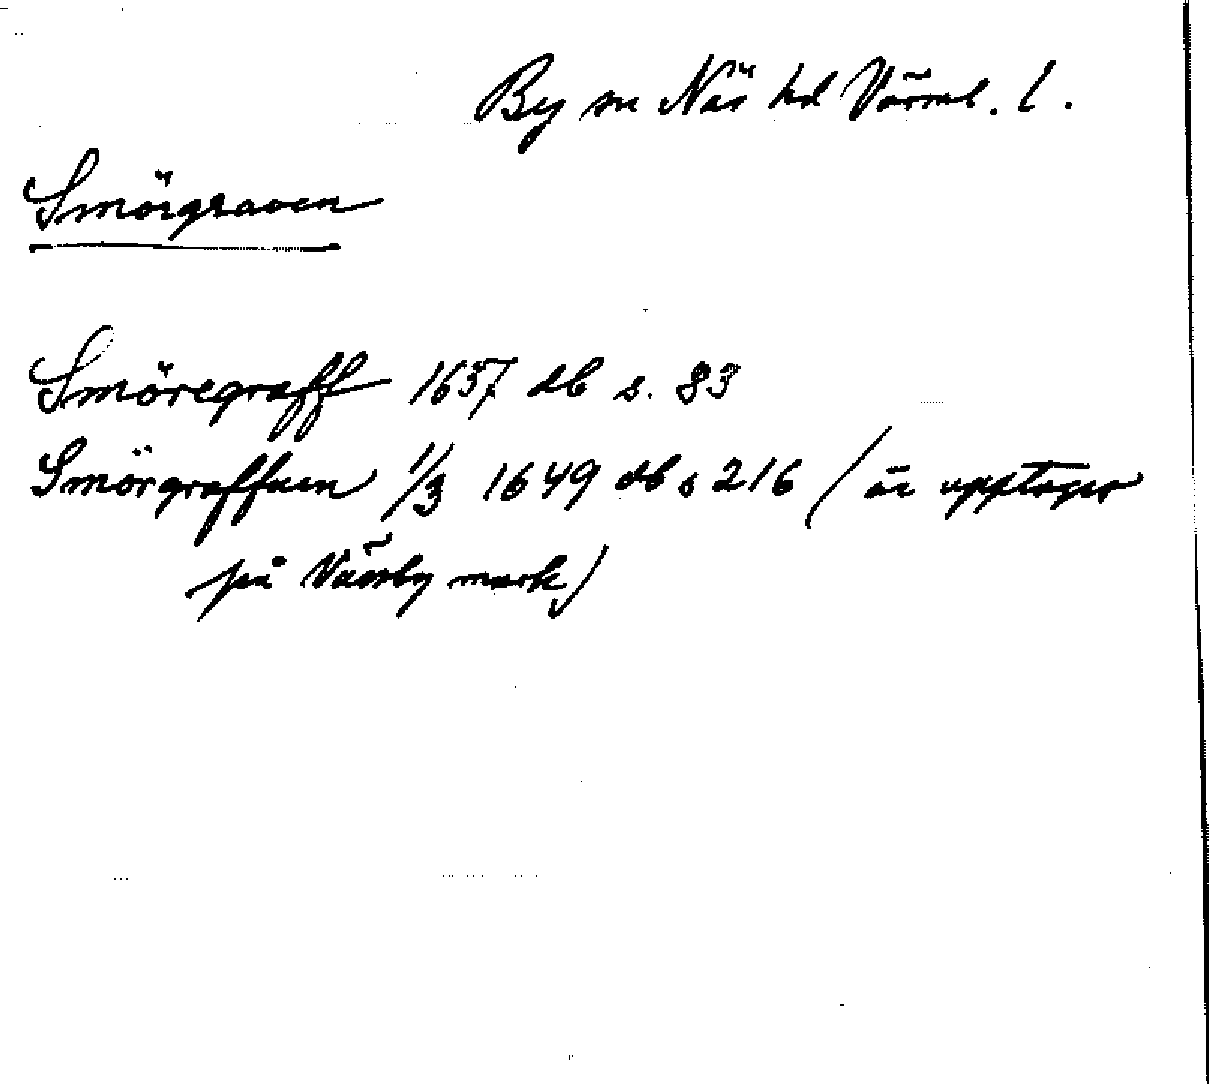 By sn Näs hd Värml. l.
Smörgraven
Smöregraff 1657 db s. 83
Smörgraffuen 1/3 1649 db s 216 (är upptager
på Väsby mark)